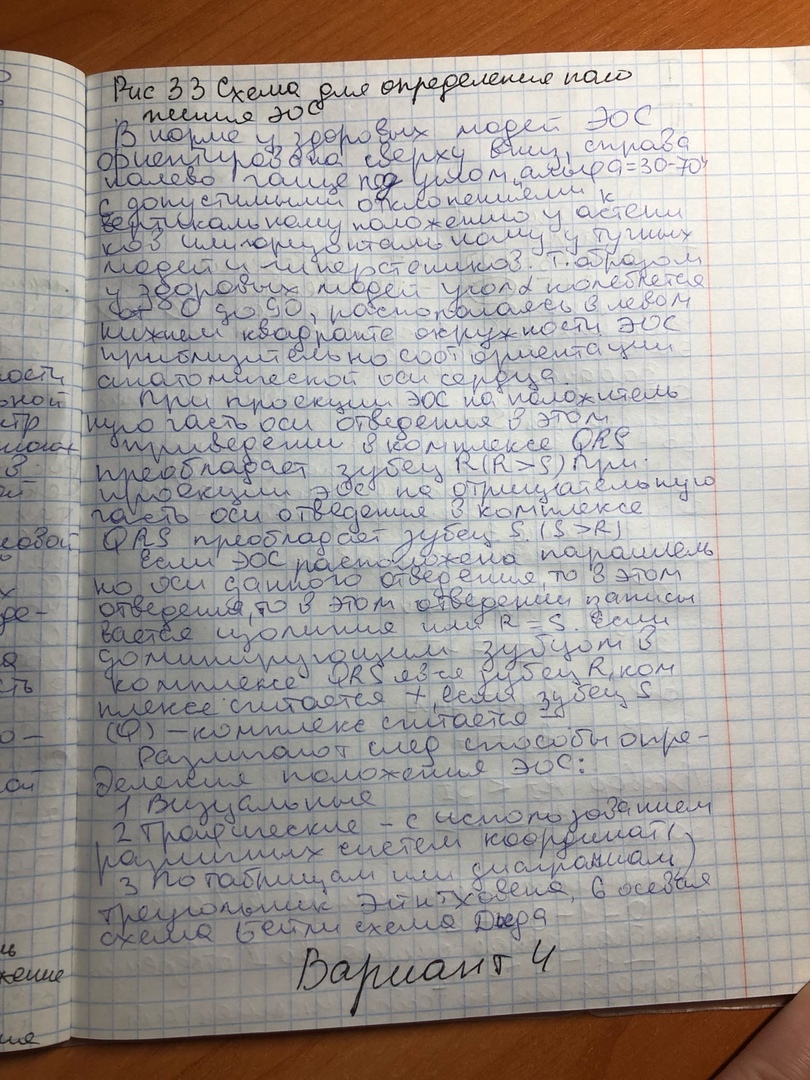 Рис 33 Схема для определения поло
жения ЭОС
В норме у здоровых людей ЭОС
ориентирована сверху вниз, справа
налево чаще под углом "альфа=30-70"
с допустимыми отклонениями к
вертикальному положению у астени
ков или горизонтальному у тучных
людей и гиперстеников. Т. образом
у здоровых людей угол α колеблется
от 0 до 90, располагаясь в левом
нижнем квадранте окружности ЭОС
приблизительно соот ориентации
анатомической оси сердца.
При проекции ЭОС на положитель
ную часть оси отведения в этом
приведении в комплексе QRS
преобладает зубец R(R>S) При
проекции ЭОС на отрицательную
часть оси отведения в комплексе
QRS преобладает зубец S. (S>R)
Если ЭОС расположена параллель
но оси данного отведения, то в этом
отведения, то в этом отведении записы
вается изолиния или R=S. Если
доминирующим зубцом в
комплексе QRS явся зубец R, ком
плексе считается +, если зубец S
(Q) – комплекс считается –
Различают след способы опре-
деления положения ЭОС:
1 Визуальные
2 Графические – с использованием
различных систем координат (
3 По таблицам или диаграммам)
треугольник Эйнтховена, 6 осевая
схема Бейли схема Дьеда
Вариант 4
ности
ьной
стр
в
еовой
х
де-
я
сть
о-
ой
ль
жение
ния